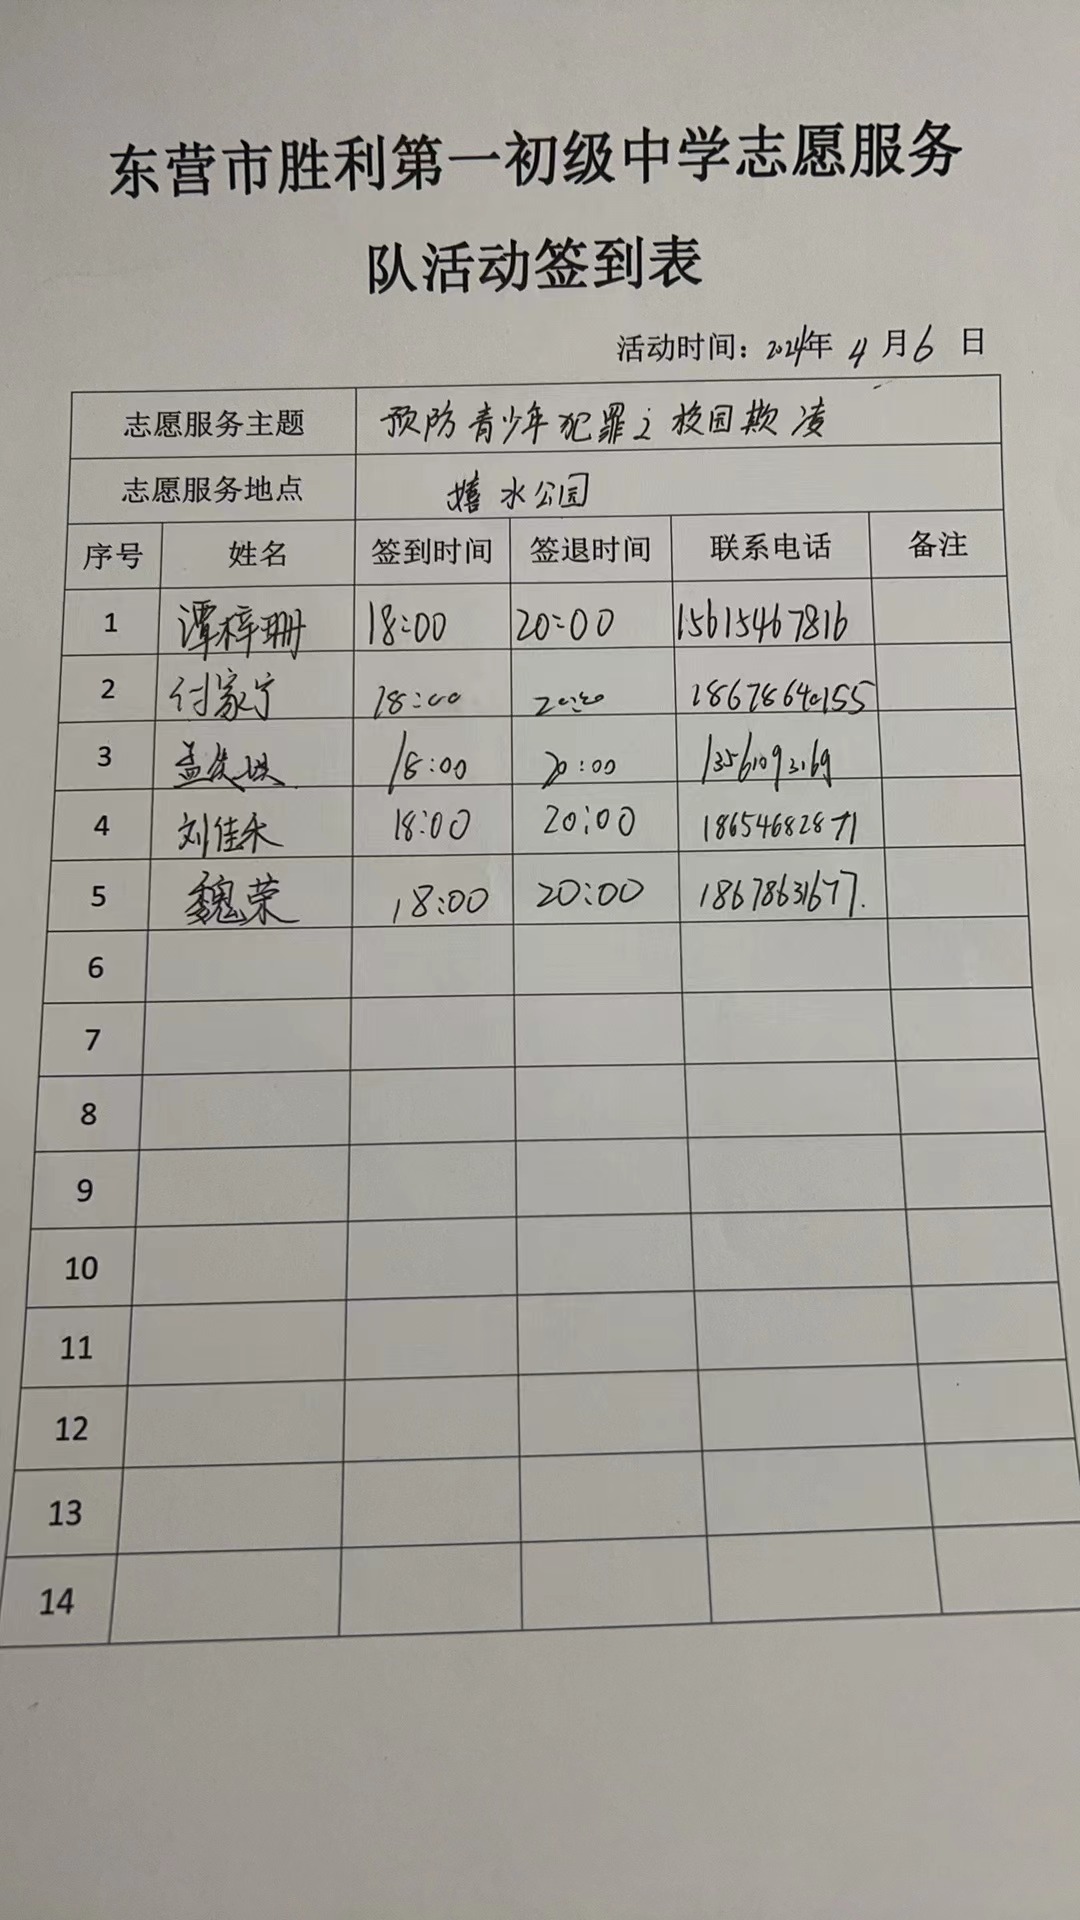 东营市胜利第一初级中学志愿服务
队活动签到表
活动时间：2024年 4 月 6 日
志愿服务主题 预防青少年犯罪之校园欺凌
志愿服务地点 嬉水公园
序号 姓名 签到时间 签退时间 联系电话 备注
1 谭梓珊 18:00 20:00 15615467816
2 付家宁 18:00 20:00 18678640155
3 孟 18:00 20:00 13561093169
4 刘佳禾 18:00 20:00 18654682871
5 魏荣 18:00 20:00 18678631677.
6
7
8
9
10
11
12
13
14